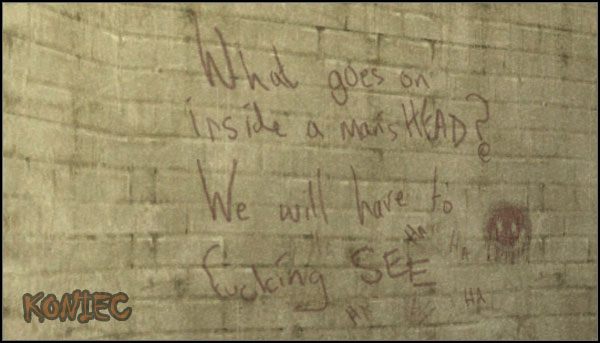 What goes on
inside a mans HEAD?
We will have to
fucking SEE
HA
HA
HA
KONIEC